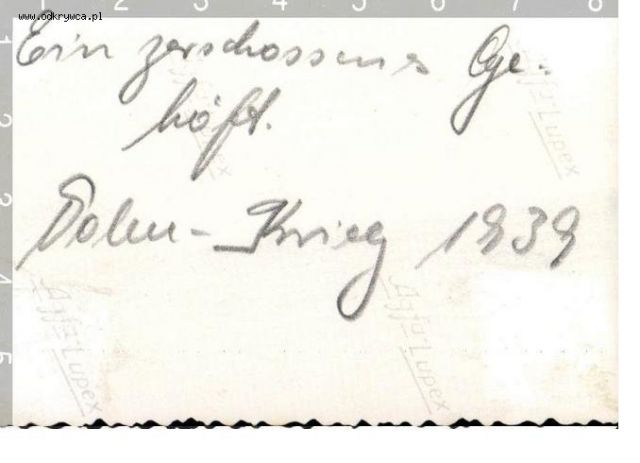 www.odkrywca.pl
1 2 3 4 5 6 7 8
Ein zerschossenes Ge-
höft.
Polen-Krieg 1939
Agfa-Lupex
Agfa-Lupex
Agfa-Lupex